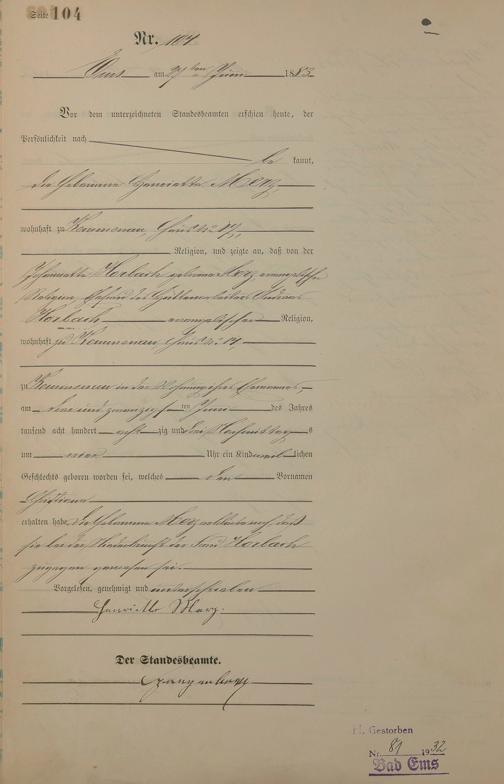 Seite 104
Nr. 104
Ems am 27ten Juni 1883
Vor dem unterzeichneten Standesbeamten erschien heute, der
Persönlichkeit nach
be kannt,
die Hebamme Henriette Merz
wohnhaft zu Haus No 87,
Religion, und zeigte an, daß von der
Horbach geborene Merz evangelischer
Religion, Ehefrau des Hüttenarbeiters
Horbach evangelischer Religion,
wohnhaft zu Haus No
zu in der Wohnung ihres Ehemannes,
am ein und zwanzigsten Juni des Jahres
tausend acht hundert acht zig und drei Nachmittags
um Uhr ein Kind weiblichen
Geschlechts geboren worden sei, welches den Vornamen
Christiane
erhalten habe, die Hebamme Merz erklärte noch daß
sie bei der Niederkunft der Frau Horbach
zugegen gewesen sei.
Vorgelesen, genehmigt und unterschrieben
Henriette Merz.
Der Standesbeamte.
H. Gestorben
Nr. 81 1932
Bad Ems